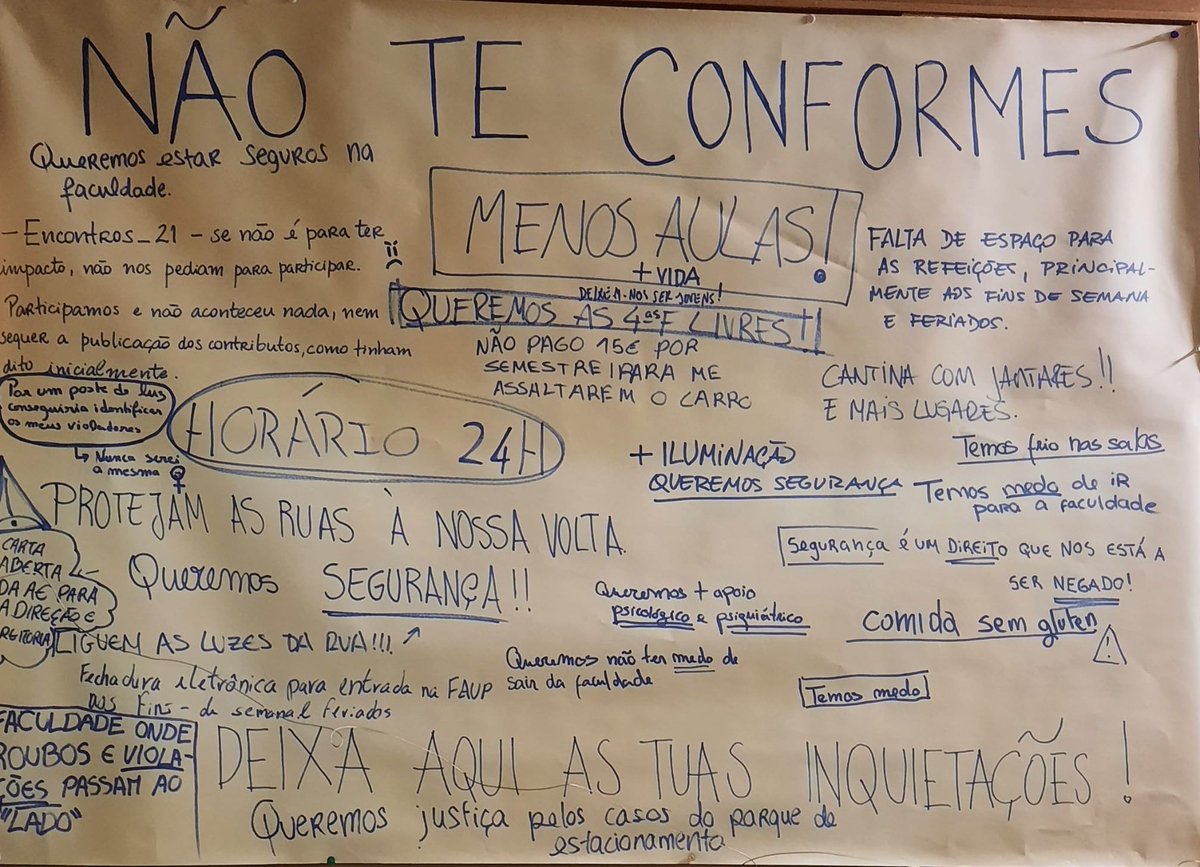 NÃO TE CONFORMES
Queremos estar seguros na
faculdade.
- Encontros_21 - se não é para ter
impacto, não nos pediam para participar.
Participamos e não aconteceu nada, nem
sequer a publicação dos contributos, como tinham
dito inicialmente.
MENOS AULAS!
+ VIDA
DEIXEM-NOS SER JOVENS!
QUEREMOS AS 4ªsF LIVRES!!
NÃO PAGO 15€ POR
SEMESTRE PARA ME
ASSALTAREM O CARRO
FALTA DE ESPAÇO PARA
AS REFEIÇÕES, PRINCIPAL-
MENTE AOS FINS DE SEMANA
E FERIADOS.
CANTINA COM JANTARES!!
E MAIS LUGARES.
Por um poste de luz
conseguiria identificar
os meus violadores
↳ Nunca serei
a mesma ♀
HORÁRIO 24H
+ ILUMINAÇÃO
QUEREMOS SEGURANÇA
Temos frio nas salas
Temos medo de iR
para a faculdade
PROTEJAM AS RUAS À NOSSA VOLTA.
Segurança é UM DIREITO QUE NOS ESTÁ A
SER NEGADO!
CARTA
ABERTA
DA AE PARA
A DIREÇÃO E
REITORIA
Queremos SEGURANÇA!!
Queremos + apoio
psicológico e psiquiátrico
comida sem gluten
LIGUEM AS LUZES DA RUA!!!
Queremos não ter medo de
sair da faculdade
Temos medo
Fechadura eletrônica para entrada na FAUP
aos fins-de semana e feriados
FACULDADE ONDE
ROUBOS E VIOLA-
ÇÕES PASSAM AO
"LADO"
DEIXA AQUI AS TUAS INQUIETAÇÕES!
Queremos justiça pelos casos do parque de
estacionamento